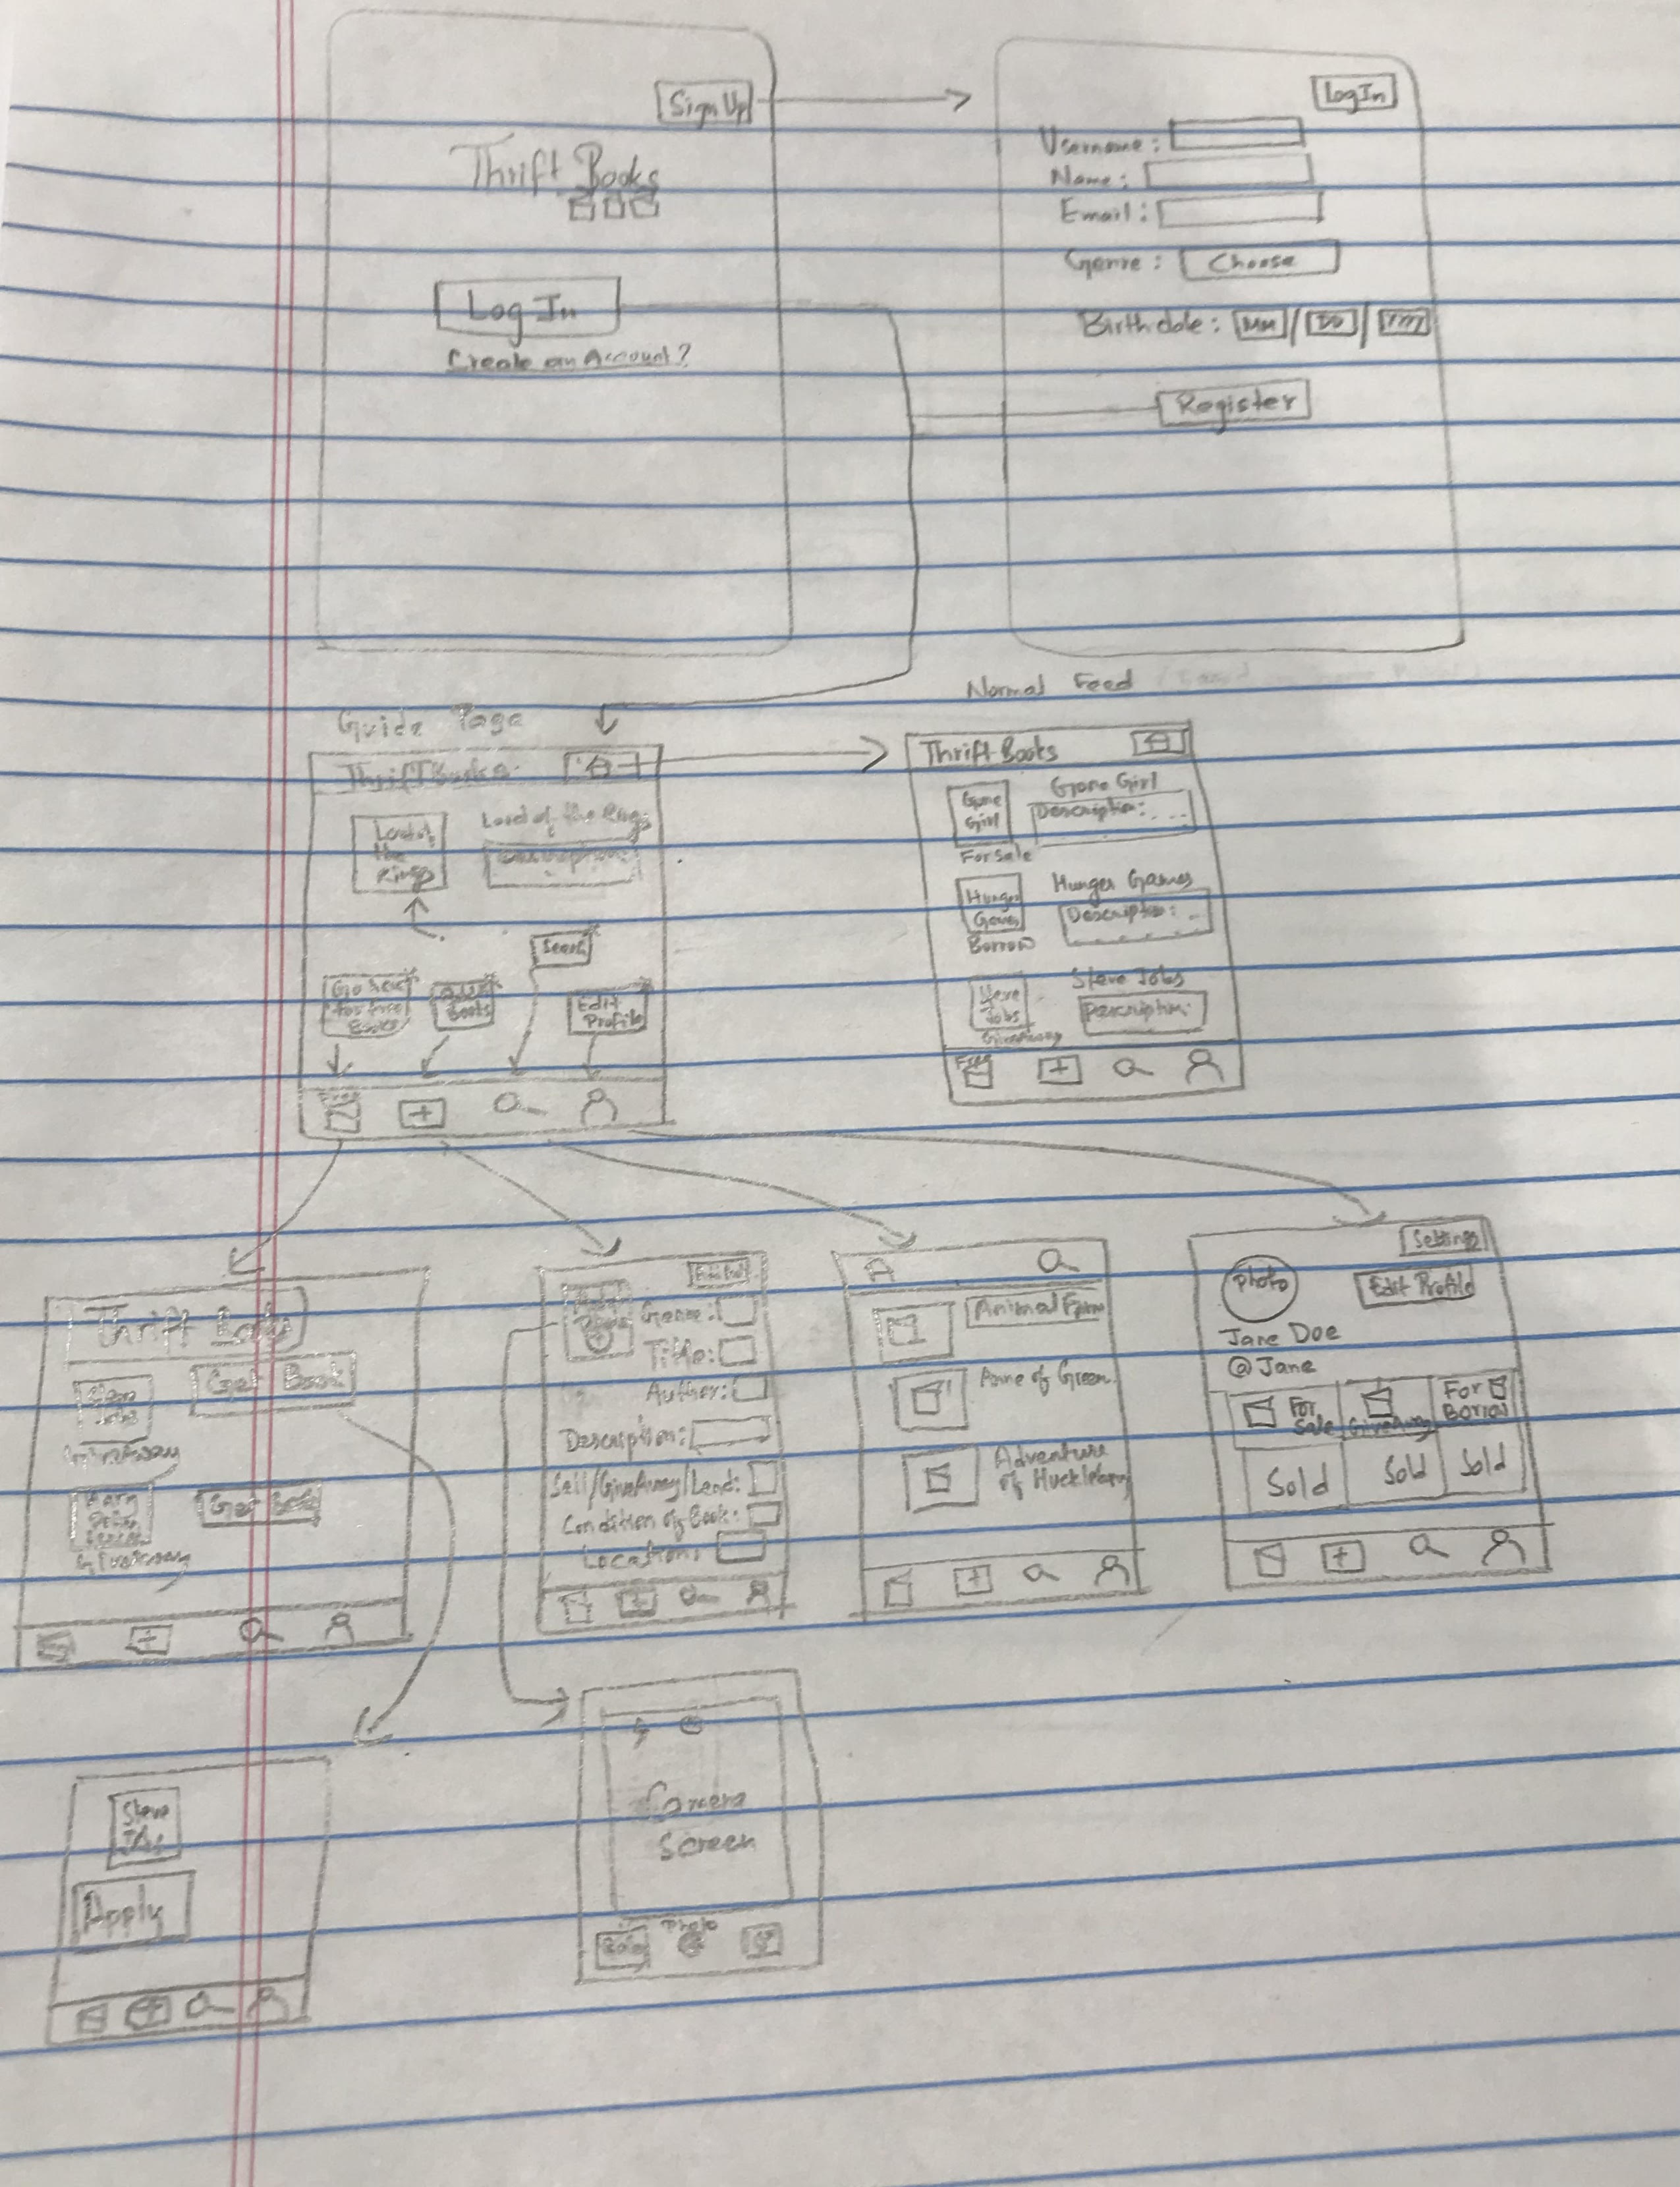 Sign Up
Thrift Books
Log In
Create an Account?
Log In
Username:
Name:
Email:
Genre: Choose
Birthdate: MM / DD / YYYY
Register
Guide Page
Thrift Books
Lord of the Rings
Lord of the Rings
Description:
Search
Books
Edit
Profile
Normal Feed
Thrift Books
Gone
Girl
Gone Girl
Description: ...
For Sale
Hunger
Games
Hunger Games
Description: ...
Borrow
Steve
Jobs
Steve Jobs
Description:
GiveAway
Free
Thrift
Get Book
GiveAway
Get Book
Giveaway
Genre:
Title:
Author:
Description:
Sell/GiveAway/Lend:
Condition of Book:
Location:
Animal Farm
Anne of Green
Adventure
of Huckleberry
Settings
Photo
Edit Profile
Jane Doe
@Jane
For
Sale
GiveAway
For
Borrow
Sold
Sold
Sold
Steve
Jobs
Apply
Camera
Screen
Photo